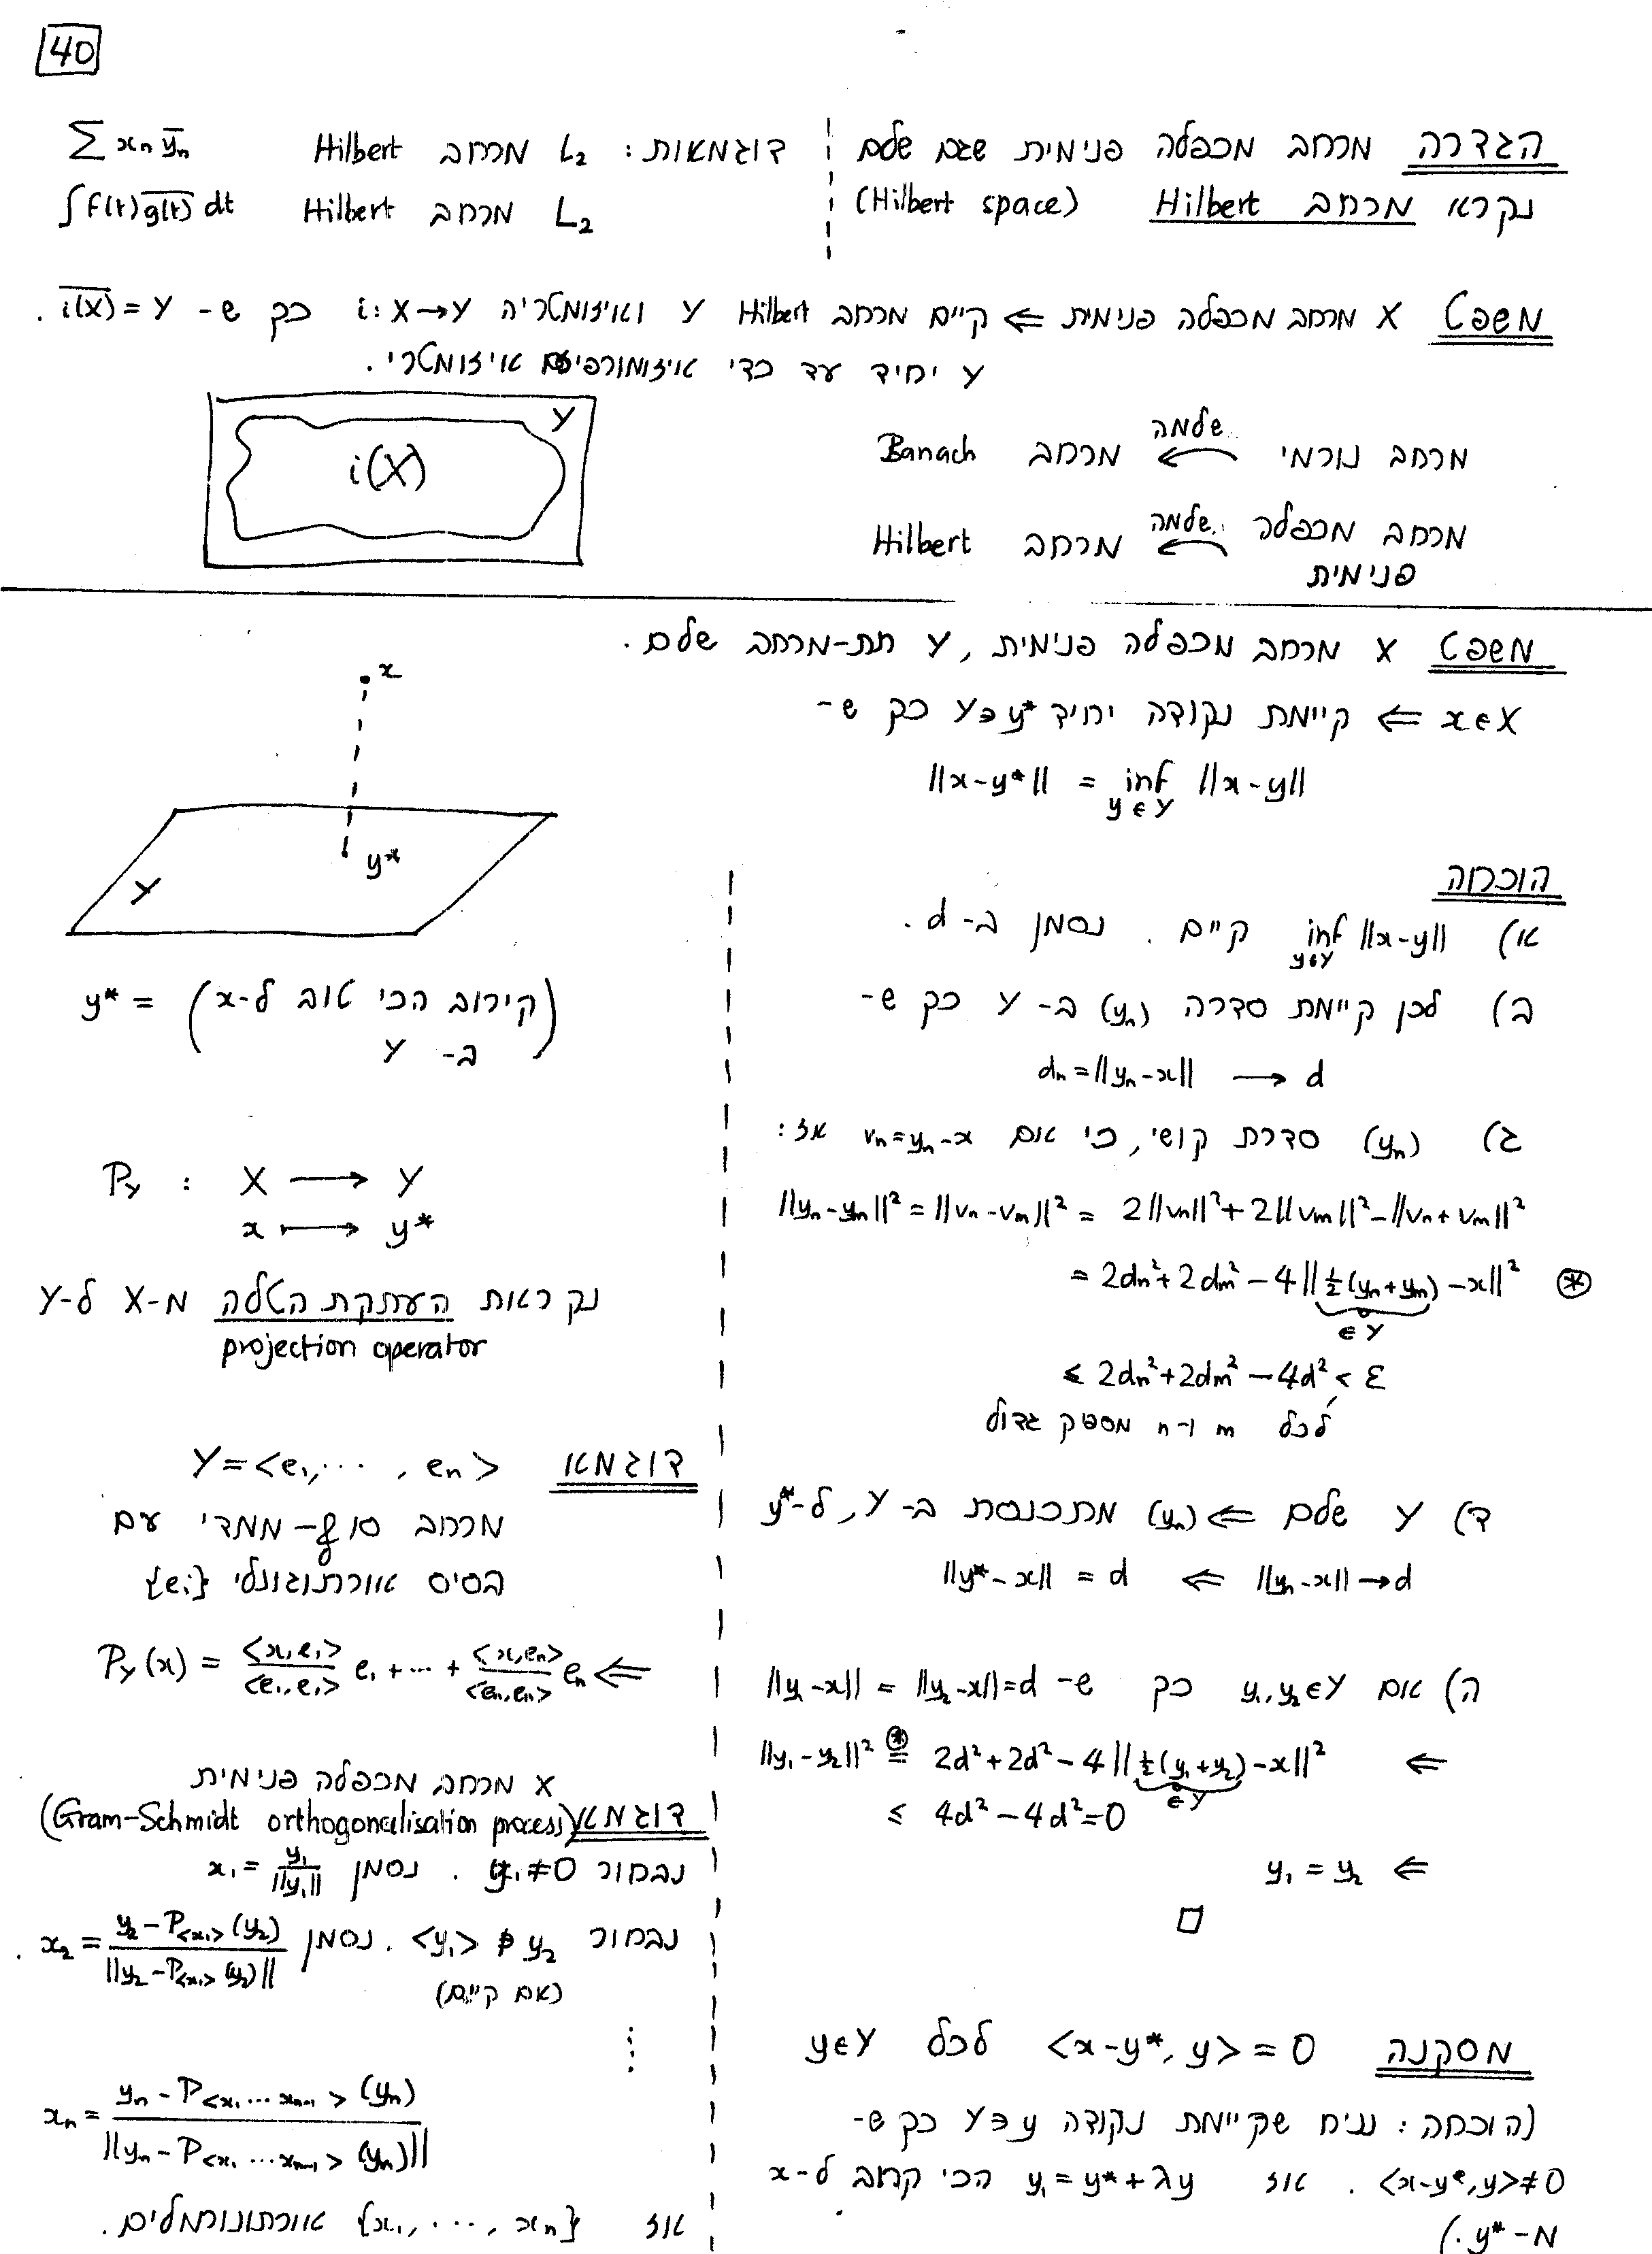 40
הגדרה מרחב מכפלה פנימית שגם שלם
נקרא מרחב Hilbert (Hilbert space)
דוגמאות: L₂ מרחב Hilbert ∑ xₙ ȳₙ
L₂ מרחב Hilbert ∫ f(t) \overline{g(t)} dt
משפט X מרחב מכפלה פנימית ⇐ קיים מרחב Hilbert Y ואיזומטריה i: X→Y כך ש- \overline{i(X)} = Y.
Y יחיד עד כדי איזומורפיזם איזומטרי.
מרחב נורמי ← השלמה מרחב Banach
מרחב מכפלה פנימית ← השלמה מרחב Hilbert
i(X) Y
משפט X מרחב מכפלה פנימית, Y תת-מרחב שלם.
x∈X ⇐ קיימת נקודה יחיד y*∈Y כך ש-
||x-y*|| = inf_{y∈Y} ||x-y||
הוכחה
א) inf_{y∈Y} ||x-y|| קיים. נסמן ב- d.
ב) לכן קיימת סדרה (yₙ) ב- Y כך ש-
dₙ = ||yₙ-x|| → d
ג) (yₙ) סדרת קושי, כי אם vₙ=yₙ-x אז:
||yₙ-yₘ||² = ||vₙ-vₘ||² = 2||vₙ||² + 2||vₘ||² - ||vₙ+vₘ||²
= 2dₙ² + 2dₘ² - 4||½(yₙ+yₘ)-x||² ⊛
∈ Y
≤ 2dₙ² + 2dₘ² - 4d² < ε
לכל m ו-n מספק גדול
ד) Y שלם ⇐ (yₙ) מתכנסת ב- Y, ל-y*
||yₙ-x|| → d ⇐ ||y*-x|| = d
ה) אם y₁,y₂∈Y כך ש- ||y₁-x|| = ||y₂-x|| = d
⇐ ||y₁-y₂||² ⊛= 2d² + 2d² - 4||½(y₁+y₂)-x||²
∈Y
≤ 4d² - 4d² = 0
⇐ y₁ = y₂
□
מסקנה <x-y*, y> = 0 לכל y∈Y
(הוכחה: נניח שקיימת נקודה y∈Y כך ש-
<x-y*,y>≠0. אז y₁ = y*+λy הכי קרוב ל-x
מ- y*.)
x
y*
Y
y* = (קירוב הכי טוב ל-x
ב- Y)
P_Y : X → Y
x ↦ y*
נקראות העתקת הטלה מ-X ל-Y
projection operator
דוגמא Y = <e₁,⋯,eₙ>
מרחב סוף-ממדי עם
בסיס אורתוגונלי {eᵢ}
⇐ P_Y(x) = <x,e₁>/<e₁,e₁> e₁ + ⋯ + <x,eₙ>/<eₙ,eₙ> eₙ
X מרחב מכפלה פנימית
דוגמא (Gram-Schmidt orthogonalisation process)
נבחור y₁≠0. נסמן x₁ = y₁/||y₁||
נבחור y₂ ∉ <y₁>. נסמן x₂ = (y₂-P_{<x₁>}(y₂))/||y₂-P_{<x₁>}(y₂)||.
(אם קיים)
⋮
xₙ = (yₙ-P_{<x₁⋯xₙ₋₁>}(yₙ))/||yₙ-P_{<x₁⋯xₙ₋₁>}(yₙ)||
אז {x₁,⋯,xₙ} אורתונורמלים.